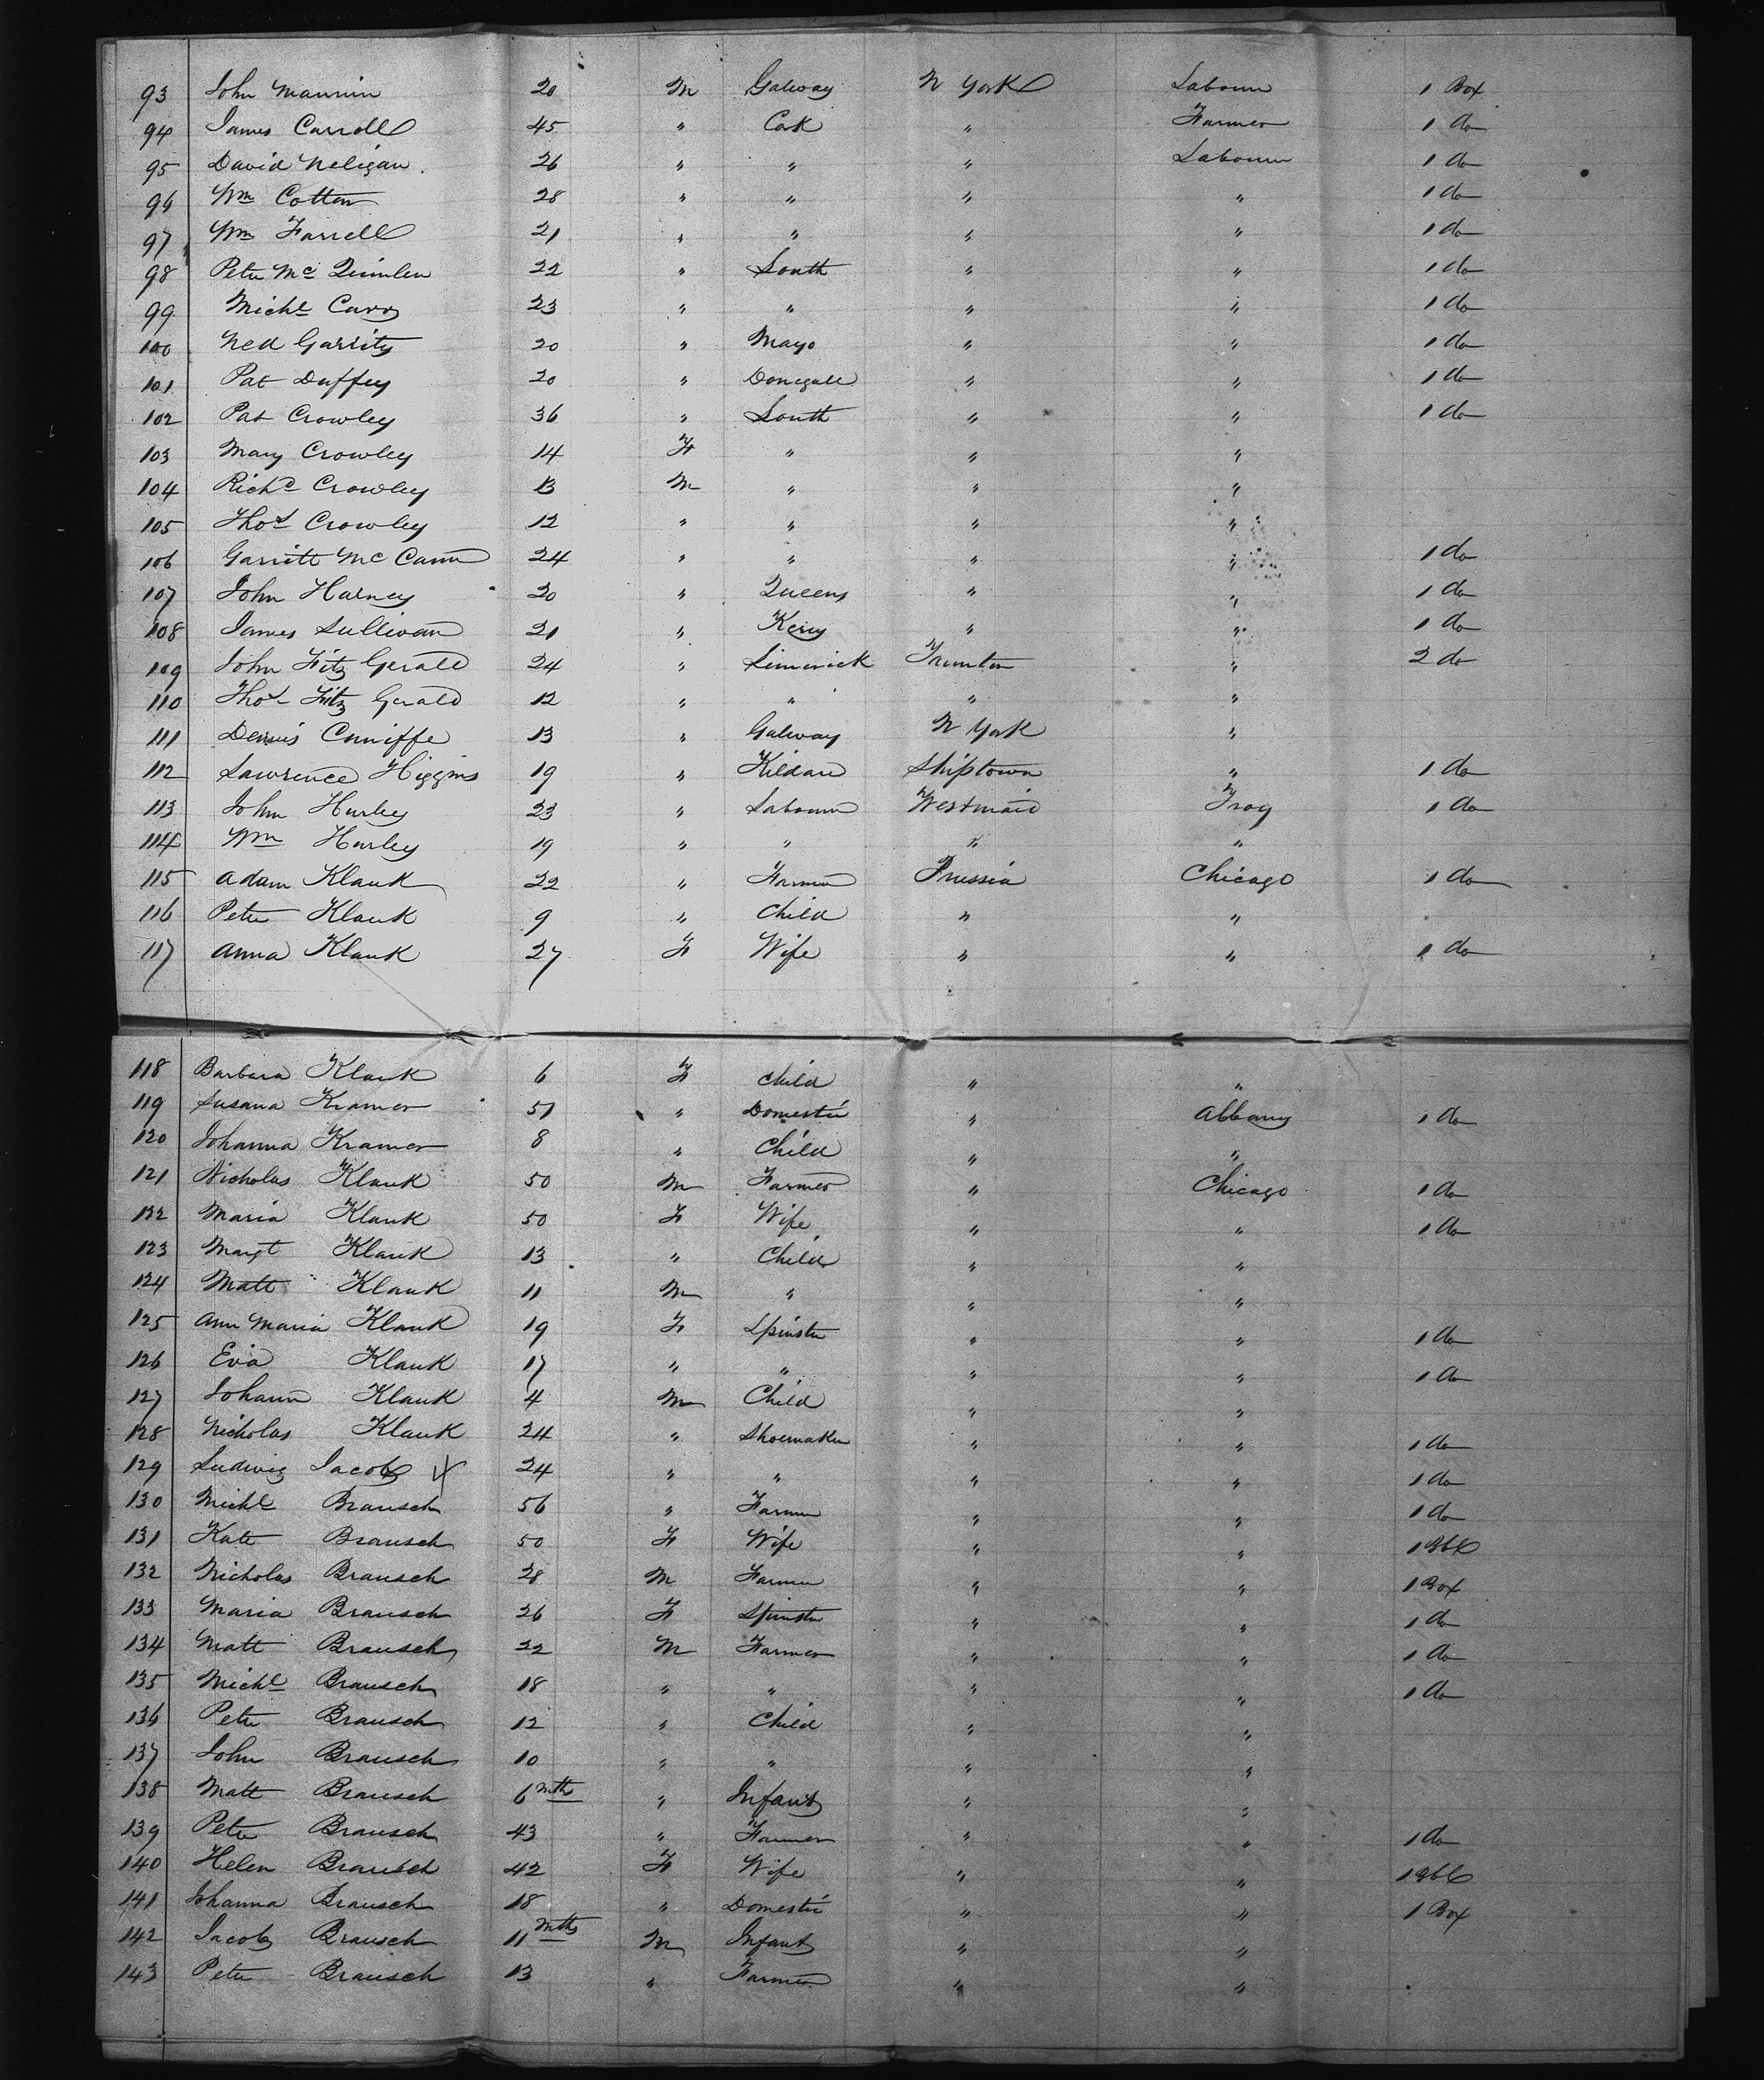 93 John Mannin 20 M Galway N York Labourer 1 Box
94 James Carroll 45 " Cork " Farmer 1 do
95 David Neligan 26 " " " Labourer 1 do
96 Wm Cotton 28 " " " " 1 do
97 Wm Farrell 21 " " " " 1 do
98 Peter Mc Quinlen 22 " South " " 1 do
99 Michl Carr 23 " " " " 1 do
100 Ned Garrity 20 " Mayo " " 1 do
101 Pat Duffey 20 " Donegall " " 1 do
102 Pat Crowley 36 " South " " 1 do
103 Mary Crowley 14 F " " "
104 Richd Crowley 13 M " " "
105 Thos Crowley 12 " " " "
106 Garritt McCann 24 " " " " 1 do
107 John Harney 20 " Queens " " 1 do
108 James Sullivan 21 " Kerry " " 1 do
109 John Fitz Gerald 24 " Limerick " 2 do
110 Thos Fitz Gerald 12 " " " "
111 Dennis Cunniffe 13 " Galway N York "
112 Lawrence Higgins 19 " Kildare Shiptown " 1 do
113 John Hurley 23 " Labourer Westmaid Troy 1 do
114 Wm Hurley 19 " " " "
115 Adam Klauk 22 " Farmer Prussia Chicago 1 do
116 Peter Klauk 9 " Child " "
117 Anna Klauk 27 F Wife " " 1 do
118 Barbara Klauk 6 F Child " "
119 Susana Kramer 51 " Domestic " Albany 1 do
120 Johanna Kramer 8 " Child " "
121 Nicholas Klauk 50 M Farmer " Chicago 1 do
122 Maria Klauk 50 F Wife " " 1 do
123 Margt Klauk 13 " Child " "
124 Matt Klauk 11 M " " "
125 Ann Maria Klauk 19 F Spinster " " 1 do
126 Eva Klauk 17 " " " " 1 do
127 Johann Klauk 4 M Child " "
128 Nicholas Klauk 24 " Shoemaker " " 1 do
129 Ludwig Jacob 24 " " " " 1 do
130 Michl Brausch 56 " Farmer " " 1 do
131 Kate Brausch 50 F Wife " " 1 Bbl
132 Nicholas Brausch 28 M Farmer " " 1 Box
133 Maria Brausch 26 F Spinster " " 1 do
134 Matt Brausch 22 M Farmer " " 1 do
135 Michl Brausch 18 " " " " 1 do
136 Peter Brausch 12 " Child " "
137 John Brausch 10 " " " "
138 Matt Brausch 6 mths " Infant " "
139 Peter Brausch 43 " Farmer " " 1 do
140 Helen Brausch 42 F Wife " " 1 Bbl
141 Johanna Brausch 18 " Domestic " " 1 Box
142 Jacob Brausch 11 mths M Infant " "
143 Peter Brausch 13 " Farmer " "